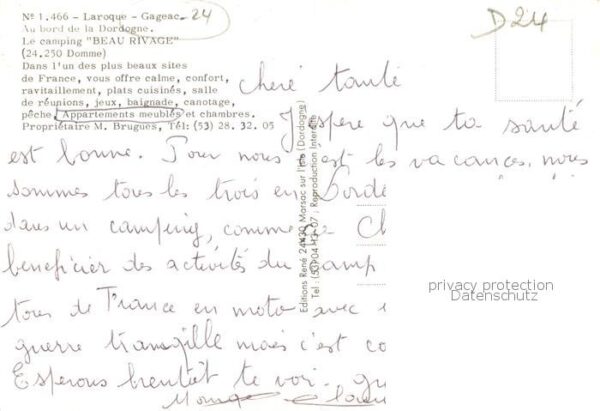 Nº 1.466 - Laroque - Gageac - 24
D24
Au bord de la Dordogne.
Le camping "BEAU RIVAGE"
(24.250 Domme)
Dans l'un des plus beaux sites
de France, vous offre calme, confort,
ravitaillement, plats cuisinés, salle
de réunions, jeux, baignade, canotage,
pêche. Appartements meublés et chambres.
Propriétaire M. Brugues, Tél: (53) 28. 32. 05
Cheré tante
J'espère que ta santé
est bonne. Pour nous c'est les vacances, nous
sommes tous les trois en Dorde
dans un camping, comme
beneficier des activités du camp
tour de France en moto avec
guerre tranquille mais c'est co
Esperons bientôt te voir.
Editions René 24430 Marsac sur l'Isle (Dordogne)
Tel : (53) 04 13 07 ; Reproduction Interdite
privacy protection
Datenschutz